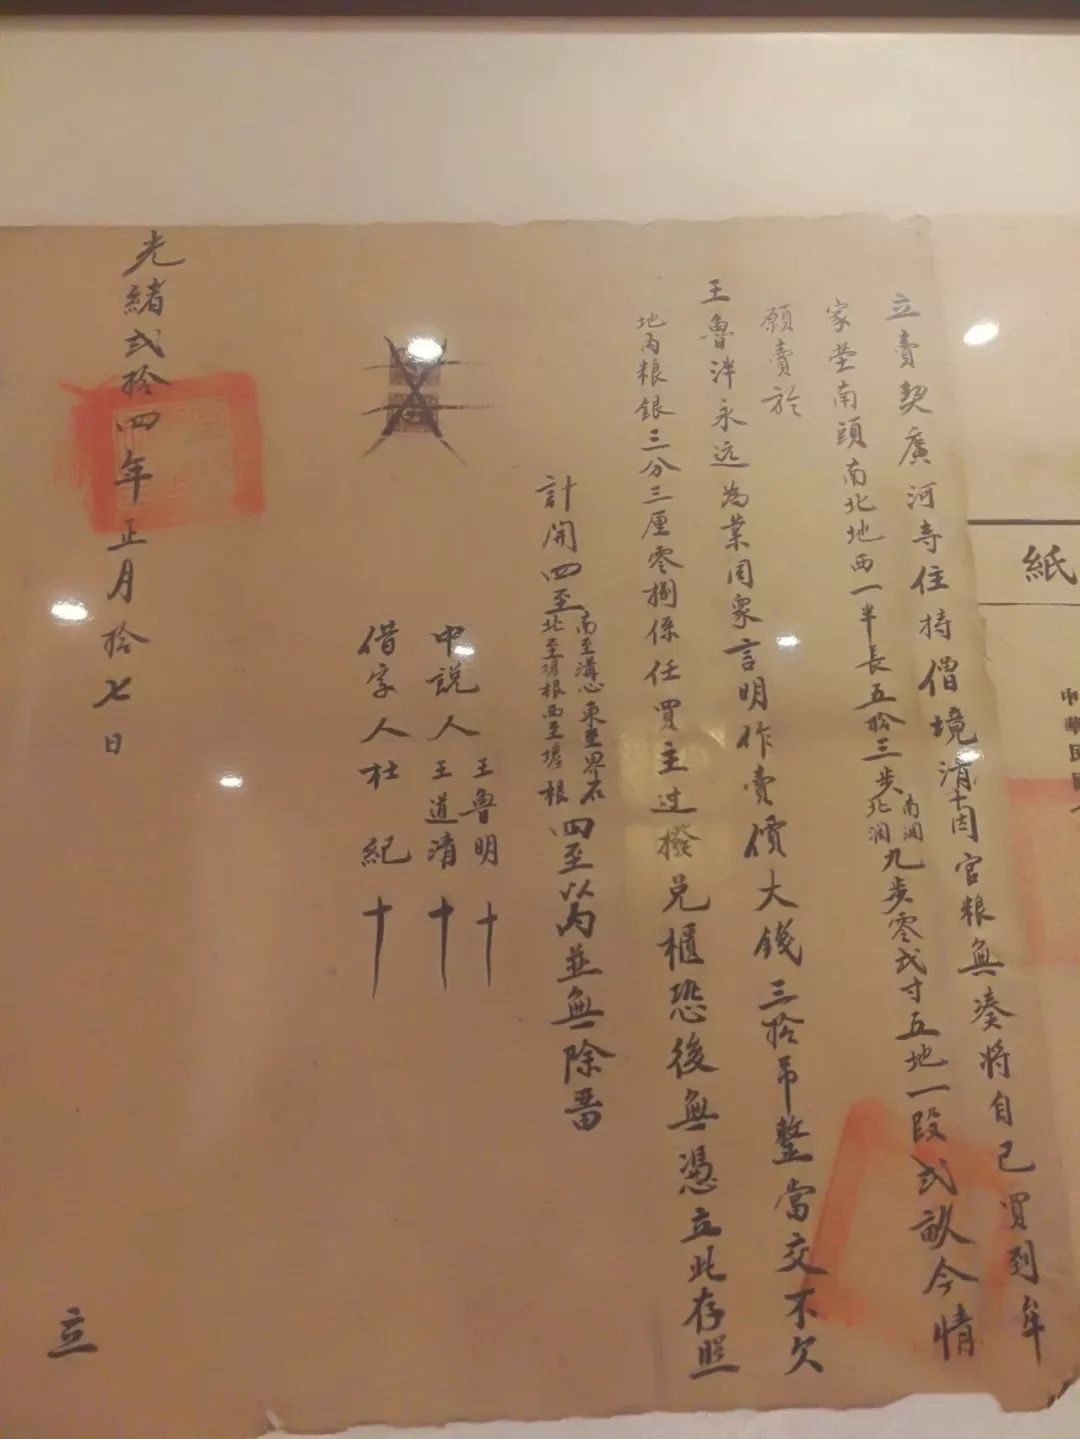 立賣契廣河寺住持僧境清十因官粮無凑將自己買到牟
家茔南頭南北地西一半長五拾三步北濶南濶九步零弍寸五地一段弍畝今情
願賣於
王魯泮永远為業同衆言明作賣價大錢三拾吊整當交不欠
地内粮銀三分三厘零捌係任買主过撥兑櫃恐後無憑立此存照
計開四至南至溝心東至界石北至堰根西至堰根四至以内並無除畱
中説人王魯明十
王道清十
借字人杜紀十
光緒弍拾四年正月拾七日
立
紙
中華民國